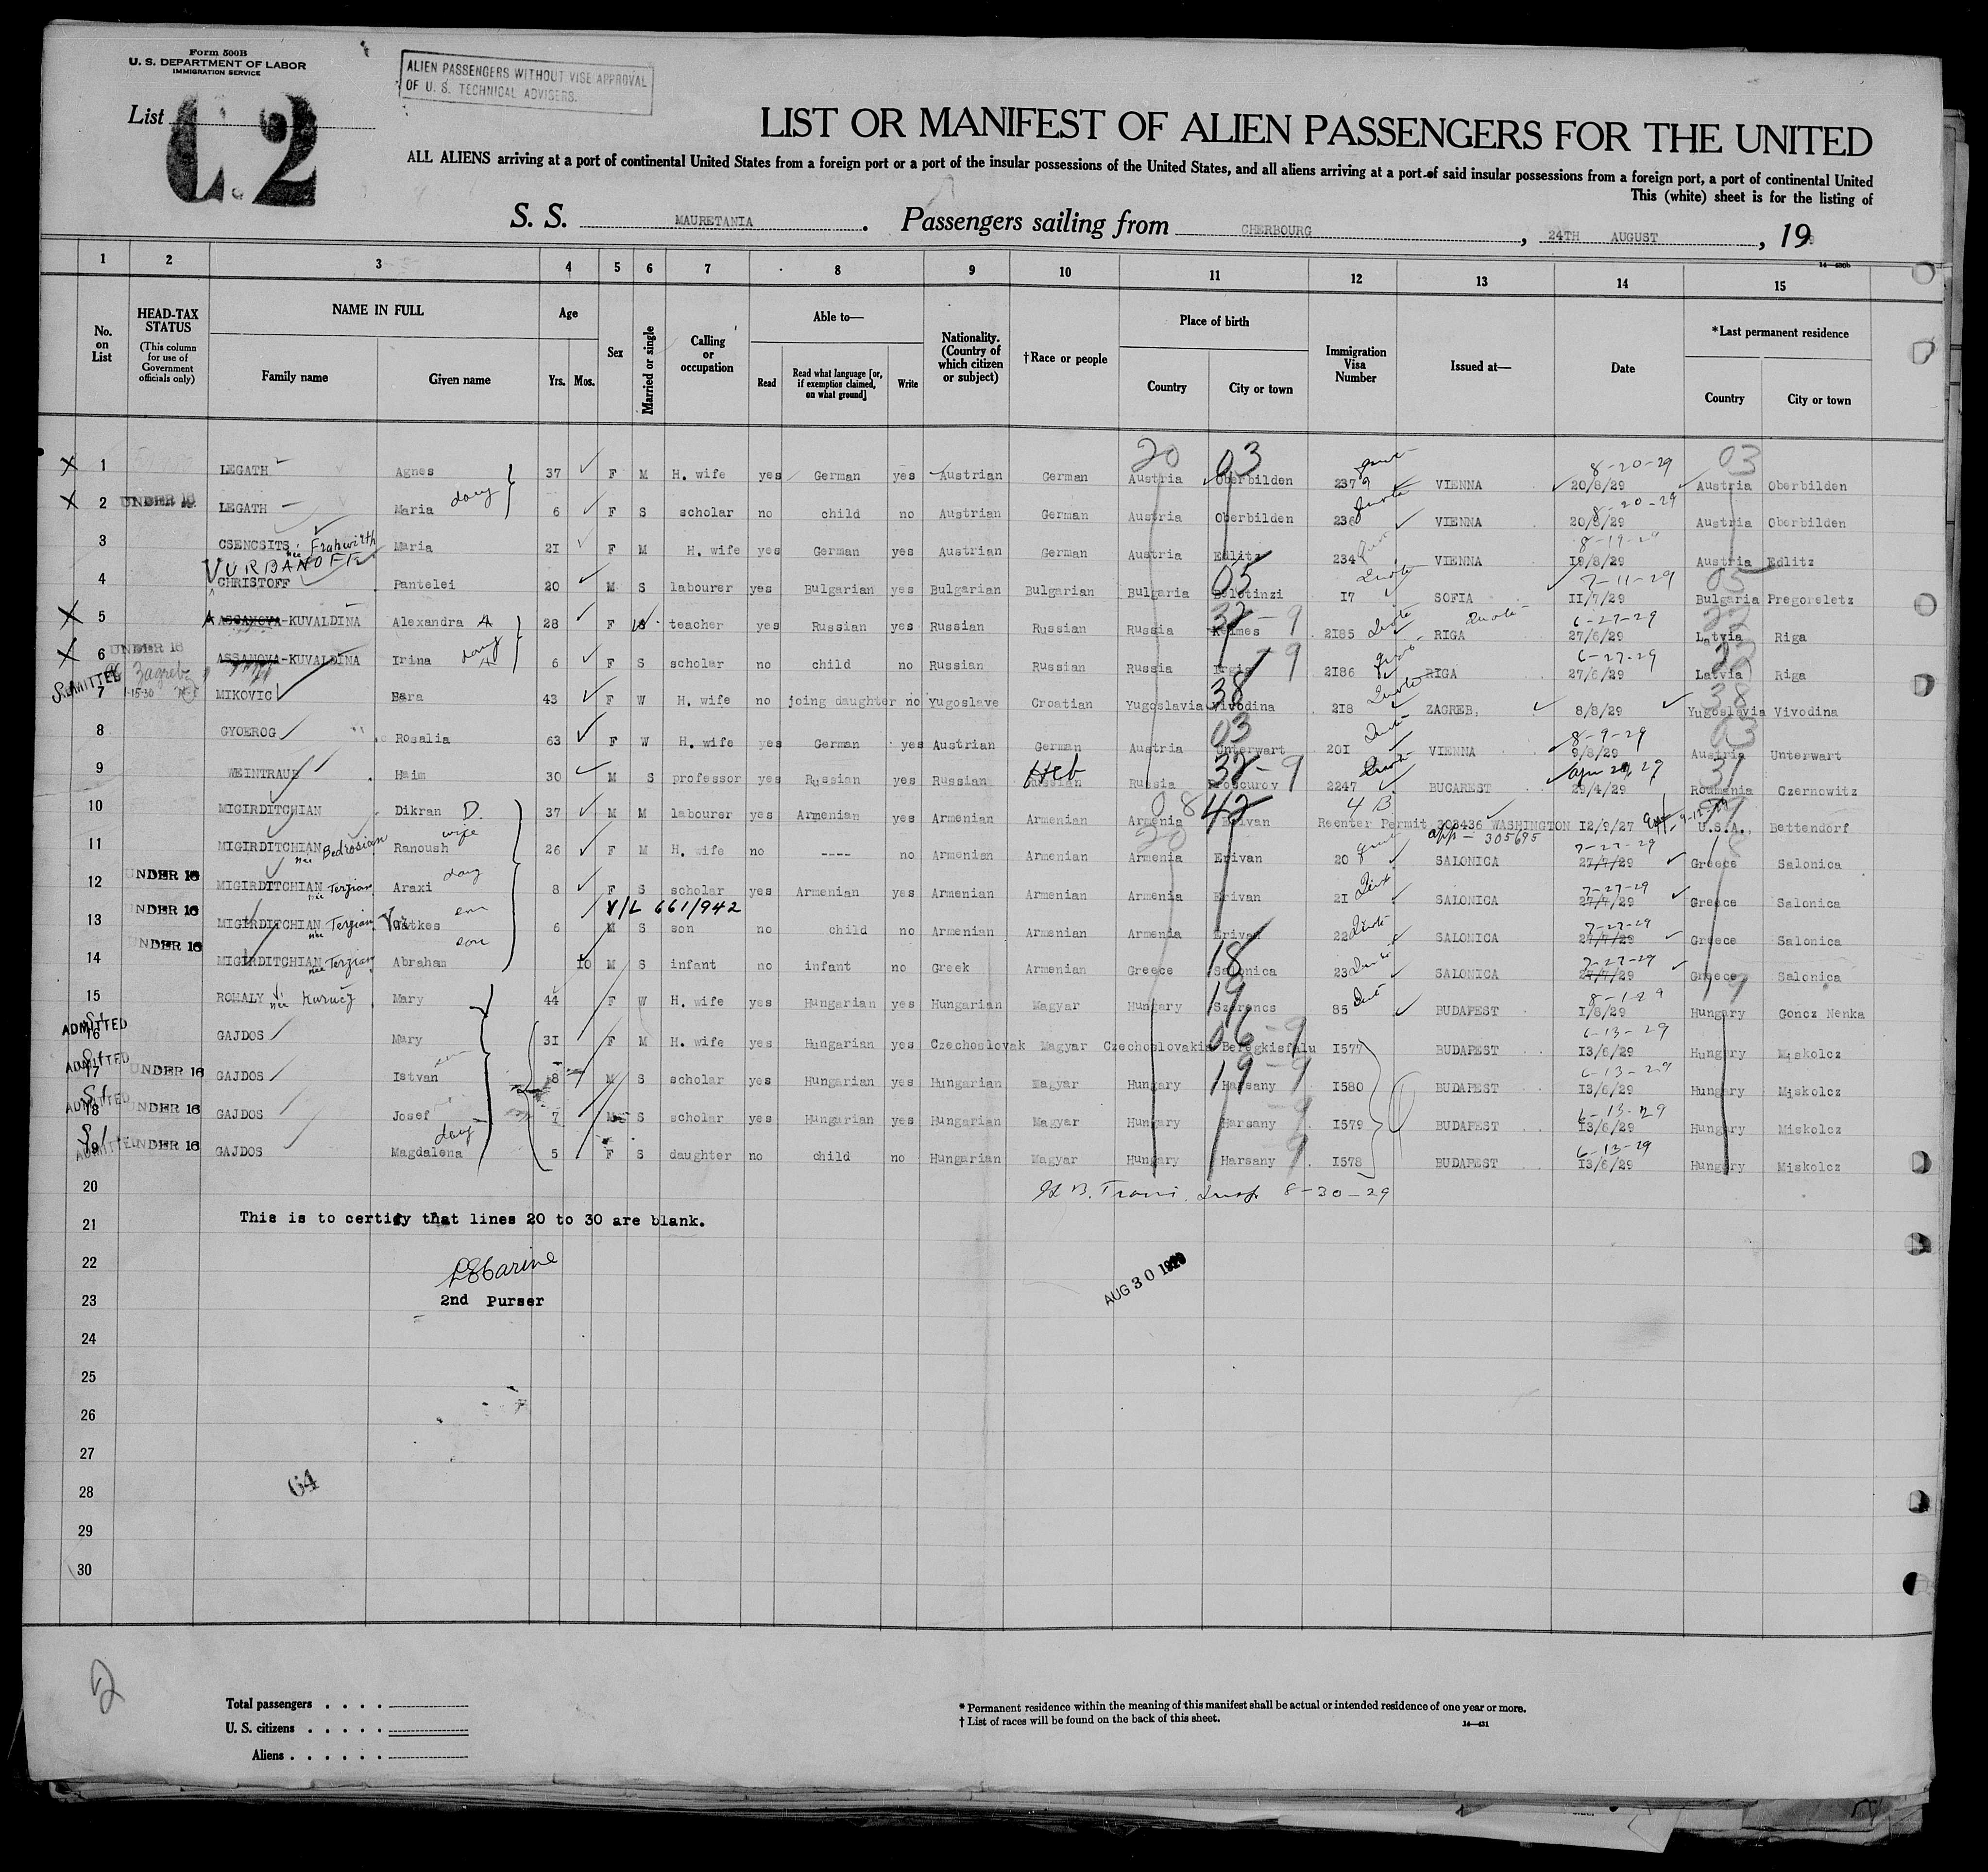 Form 500B
U. S. DEPARTMENT OF LABOR
IMMIGRATION SERVICE
ALIEN PASSENGERS WITHOUT VISE APPROVAL
OF U. S. TECHNICAL ADVISERS.
List C.2
LIST OR MANIFEST OF ALIEN PASSENGERS FOR THE UNITED
ALL ALIENS arriving at a port of continental United States from a foreign port or a port of the insular possessions of the United States, and all aliens arriving at a port of said insular possessions from a foreign port, a port of continental United
This (white) sheet is for the listing of
S. S. MAURETANIA. Passengers sailing from CHERBOURG, 24TH AUGUST, 19
14—430b
1 2 3 4 5 6 7 8 9 10 11 12 13 14 15
No. on List
HEAD-TAX STATUS
(This column for use of Government officials only)
NAME IN FULL
Family name Given name
Age
Yrs. Mos.
Sex
Married or single
Calling or occupation
Able to—
Read
Read what language [or, if exemption claimed, on what ground]
Write
Nationality. (Country of which citizen or subject)
†Race or people
Place of birth
Country City or town
Immigration Visa Number
Issued at—
Date
*Last permanent residence
Country City or town
20 03 03
8-20-29
X 1 LEGATH Agnes 37 F M H. wife yes German yes Austrian German Austria Oberbilden 2379 VIENNA 20/8/29 Austria Oberbilden
8-20-29
X 2 UNDER 16 LEGATH Maria daug 6 F S scholar no child no Austrian German Austria Oberbilden 236 VIENNA 20/8/29 Austria Oberbilden
8-19-29
3 CSENCSITS née Fruhwirth Maria 21 F M H. wife yes German yes Austrian German Austria Edlitz 234 VIENNA 19/8/29 Austria Edlitz
URBANOFF 05 Quota 7-11-29 05
4 CHRISTOFF Pantelei 20 M S labourer yes Bulgarian yes Bulgarian Bulgarian Bulgaria Belotinzi 17 SOFIA 11/7/29 Bulgaria Pregoreletz
32-9 Quota 6-27-29 22
X 5 ASSAMOVA-KUVALDINA Alexandra A 28 F S teacher yes Russian yes Russian Russian Russia Kelmes 2185 RIGA 27/6/29 Latvia Riga
UNDER 16 daug 9 6-27-29
X 6 ASSAMOVA-KUVALDINA Irina A 6 F S scholar no child no Russian Russian Russia Irgis 2186 RIGA 27/6/29 Latvia Riga
ADMITTED Zagreb 1-15-30 38 Quota 38
7 MIKOVIC Bara 43 F W H. wife no joing daughter no Yugoslave Croatian Yugoslavia Vivodina 218 ZAGREB, 8/8/29 Yugoslavia Vivodina
03 8-9-29 03
8 GYOEROG Rosalia 63 F W H. wife yes German yes Austrian German Austria Unterwart 201 VIENNA 9/8/29 Austria Unterwart
Heb 32-9 Quota 31
9 WEINTRAUB Haim 30 M S professor yes Russian yes Russian Russian Russia Proscurov 2247 BUCAREST 29/4/29 Roumania Czernowitz
08 42 4 B
10 MIGIRDITCHIAN Dikran D. 37 M M labourer yes Armenian yes Armenian Armenian Armenia Erivan Reenter Permit 303436 WASHINGTON 12/9/27 U.S.A., Bettendorf
20 app - 305695
wife 7-27-29
11 MIGIRDITCHIAN née Bedrosian Ranoush 26 F M H. wife no ---- no Armenian Armenian Armenia Erivan 20 SALONICA 27/7/29 Greece Salonica
daug 7-27-29
12 UNDER 16 MIGIRDITCHIAN née Terzian Araxi 8 F S scholar yes Armenian yes Armenian Armenian Armenia Erivan 21 SALONICA 27/7/29 Greece Salonica
V/L 661/942
7-27-29
13 UNDER 16 MIGIRDITCHIAN née Terzian Vatkes son 6 M S son no child no Armenian Armenian Armenia Erivan 22 Quota SALONICA 27/7/29 Greece Salonica
son 18 7-27-29
14 UNDER 16 MIGIRDITCHIAN née Terzian Abraham 10 M S infant no infant no Greek Armenian Greece Salonica 23 SALONICA 27/7/29 Greece Salonica
19 8-1-29 9
15 ROMALY née Kurucz Mary 44 F W H. wife yes Hungarian yes Hungarian Magyar Hungary Szerencs 85 BUDAPEST 1/8/29 Hungary Goncz Nenka
SI ADMITTED 06-9 6-13-29
16 GAJDOS Mary 31 F M H. wife yes Hungarian yes Czechoslovak Magyar Czechoslovakia Beregkisfalu 1577 BUDAPEST 13/6/29 Hungary Miskolcz
SI ADMITTED son 19-9 6-13-29
17 UNDER 16 GAJDOS Istvan 8 M S scholar yes Hungarian yes Hungarian Magyar Hungary Harsany 1580 BUDAPEST 13/6/29 Hungary Miskolcz
SI ADMITTED 9 6-13-29
18 UNDER 16 GAJDOS Josef 7 M S scholar yes Hungarian yes Hungarian Magyar Hungary Harsany 1579 BUDAPEST 13/6/29 Hungary Miskolcz
SI ADMITTED daug 9 6-13-29
19 UNDER 16 GAJDOS Magdalena 5 F S daughter no child no Hungarian Magyar Hungary Harsany 1578 BUDAPEST 13/6/29 Hungary Miskolcz
20 Insp 8-30-29
21 This is to certify that lines 20 to 30 are blank.
22
23 2nd Purser
AUG 30 1929
24
25
26
27
28 64
29
30
2
Total passengers . . . .
U. S. citizens . . . . .
Aliens . . . . . .
* Permanent residence within the meaning of this manifest shall be actual or intended residence of one year or more.
† List of races will be found on the back of this sheet.
14—431